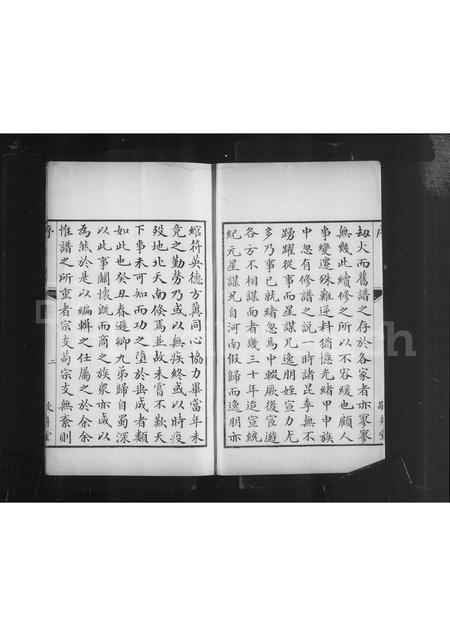 劫火而舊譜之存於各家者亦寥寥
無幾此續修之所以不容緩也顧人
事變遷殊難逆料猶憶光緒甲申族
中忽有修譜之說一時諸昆季無不
踴躍從事而星謀兄逸朋姪宣力尤
多乃事已就緒忽焉中輟厥後宦遊
各方不相謀面者幾三十年迨宣統
紀元星謀兄自河南假歸而逸朋亦
綰符吳德方冀同心協力畢當年未
竟之勤勞乃或以無疾終或以時疫
歿地北天南倏焉並故未嘗不歎天
下事未可知而功之墮於垂成者類
如此也癸丑春遜卿九弟歸自蜀深
以此事關懷旣而商之族衆亦咸以
為然於是以編輯之任屬之於余余
惟譜之所重者宗支苟宗支無紊則
序
二